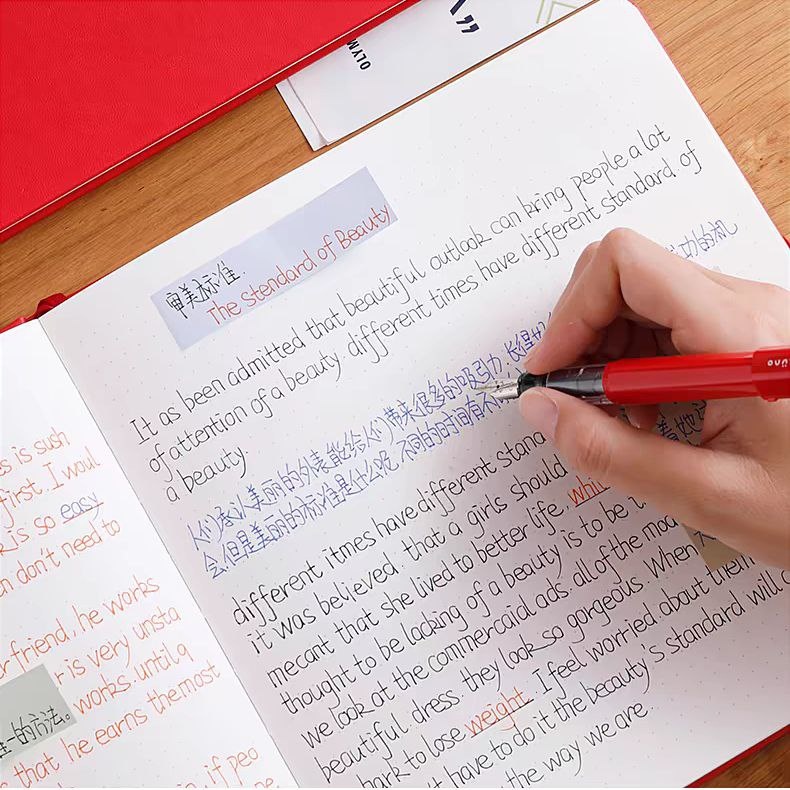 OLYM
审美标准.
The Stendard of Beauty
It as been admitted that beautiful outlook can bring people a lot
of attention of a beauty. different times have different standard of
a beauty.
人们承认美丽的外表能给人们带来很多的吸引力,长得好
成功的机
会,但是美丽的标准是什么呢,不同的时间有不
着她
different itmes have different stand
it was believed, that a girls should
mecant that she lived to better life, whi
thought to be lacking of a beauty is to be
we look at the commercaial ads. all of the mod
beautiful dress they look so gorgeous. When
hark to lose weight. I feel worried about them
't have to do it the becauty's standard will
the way we are
es is sush
first. I woul
R is so easy
en don't need to
r friend, he works
r is very unsta
works. until q
一的方法。
s that he earns the most
if peo
uno